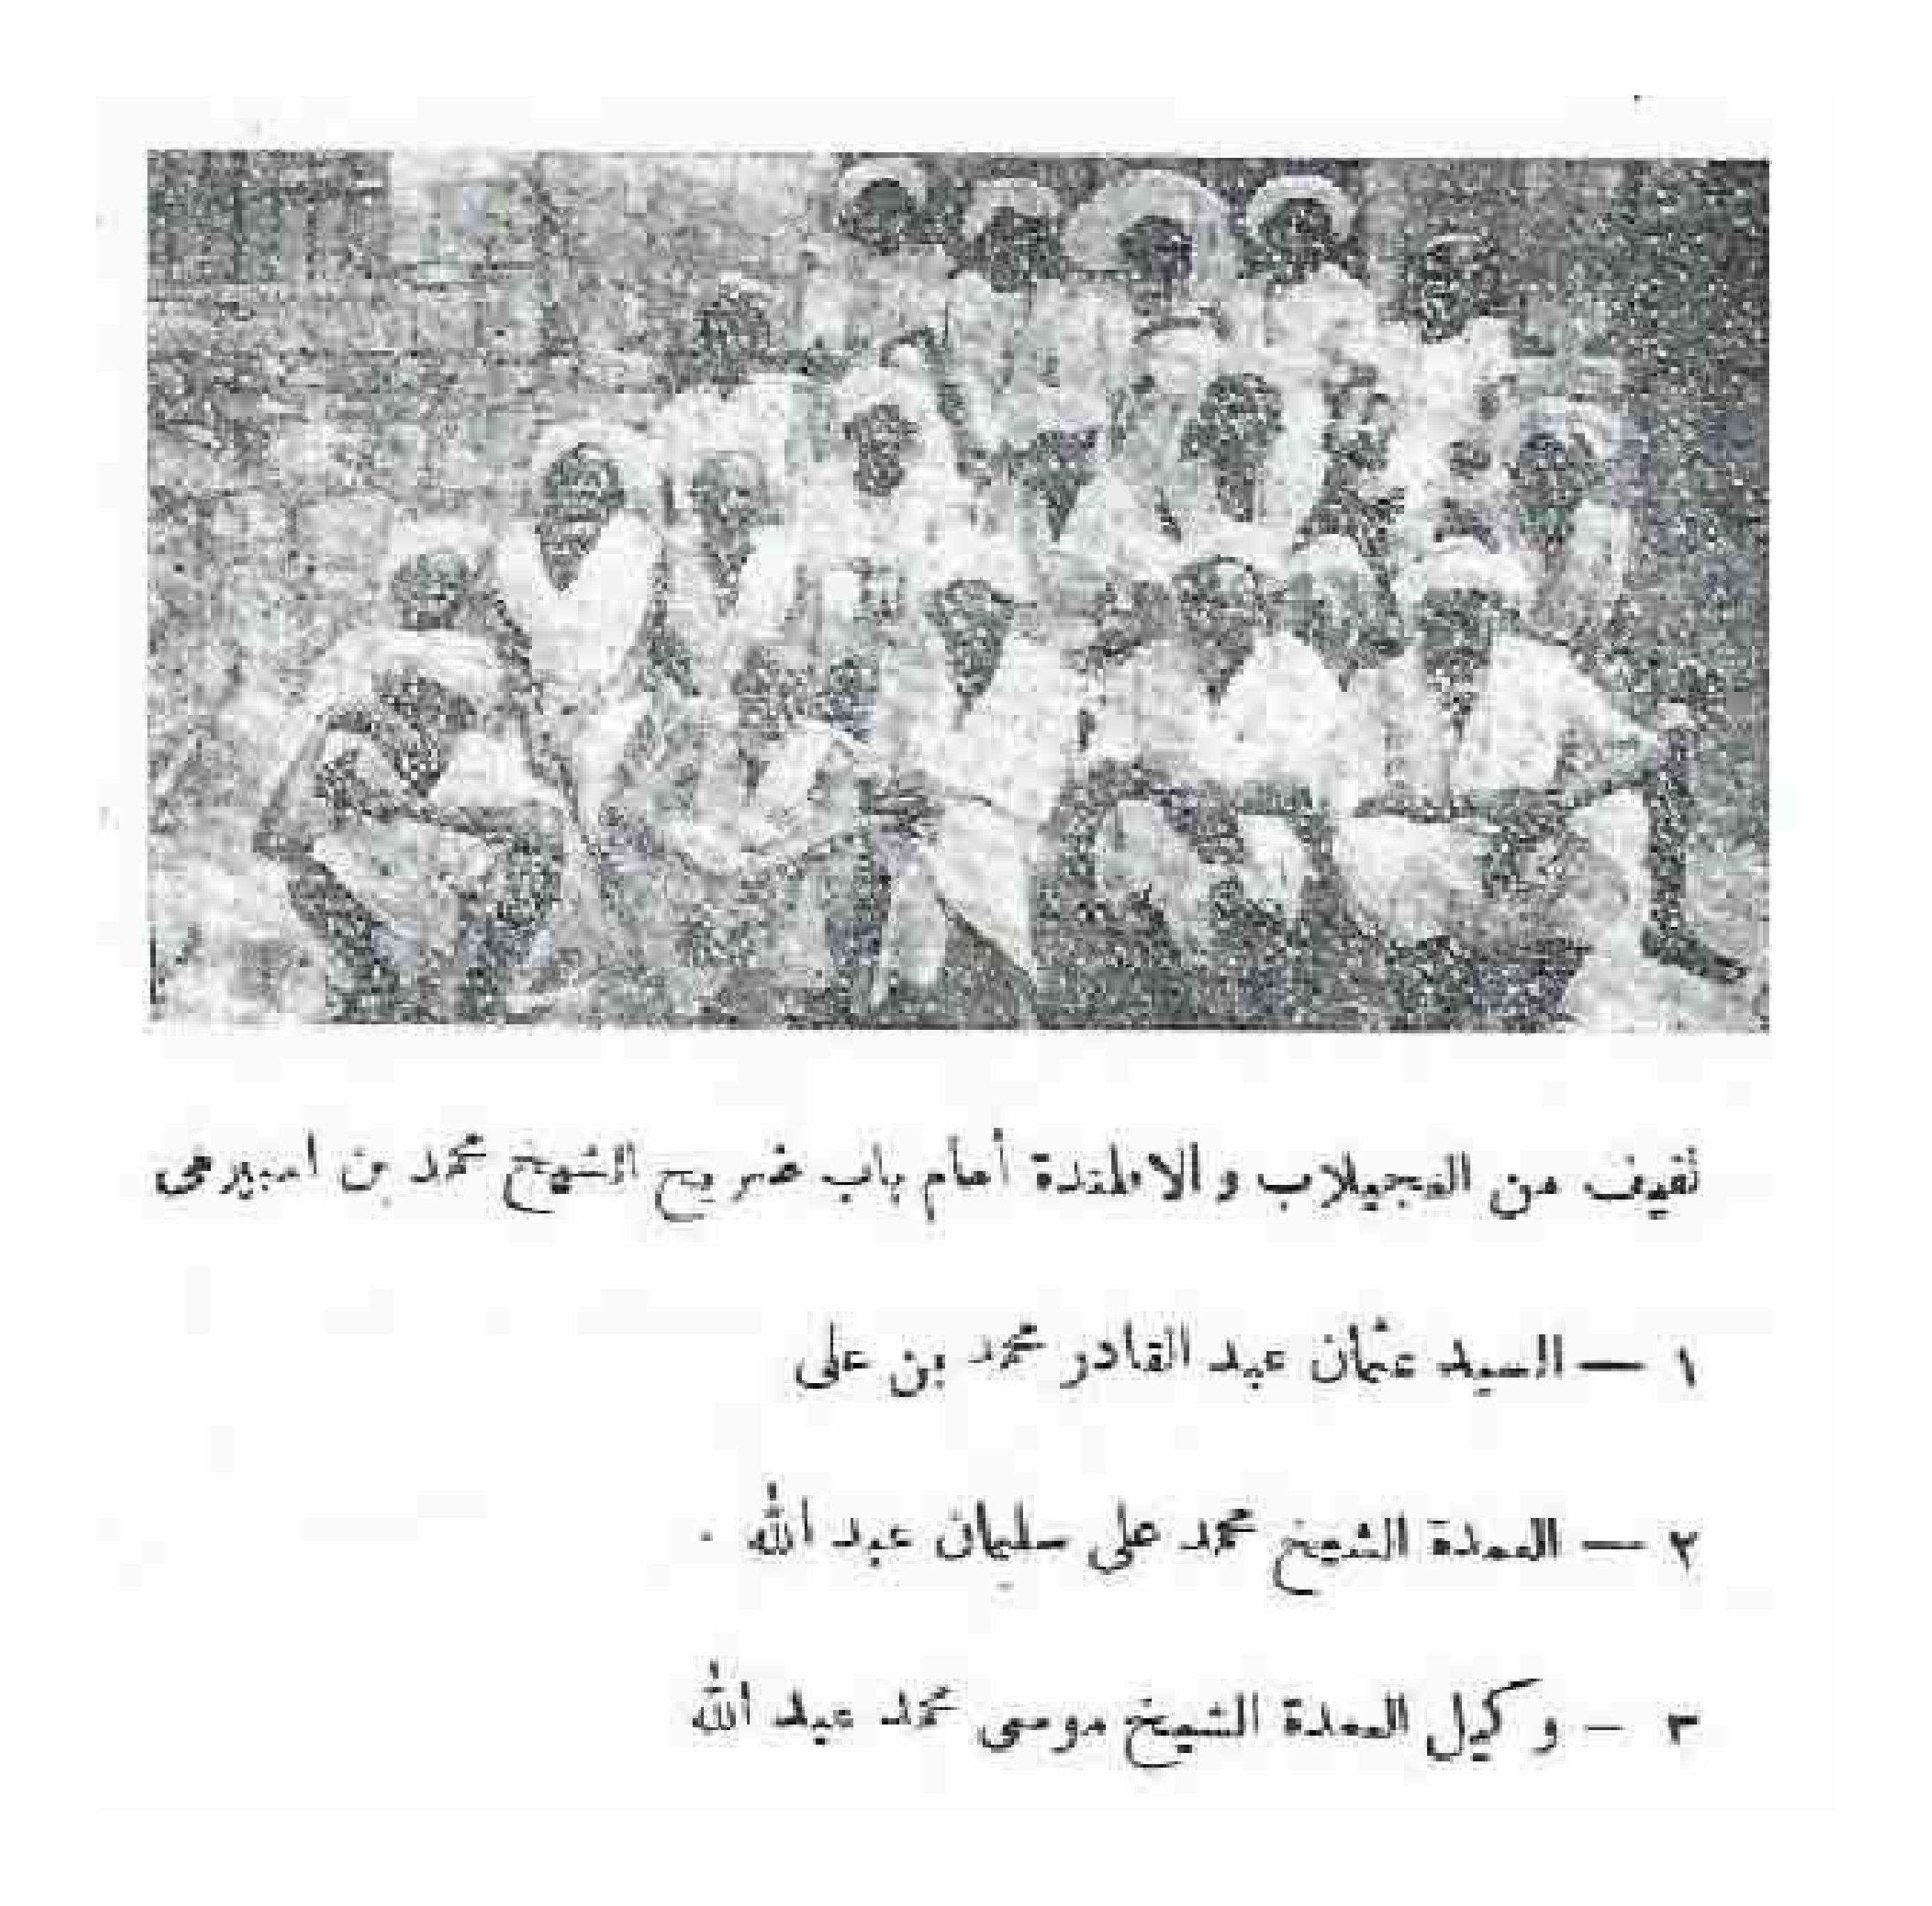 لفيف من العجيلاب والافلندة أمام باب ضريح الشيخ محمد بن امبيرمى
١ — السيد عثمان عبد القادر محمد بن على
٢ — العمدة الشيخ محمد على سليمان عبد الله .
٣ — وكيل العمدة الشيخ موسى محمد عبد الله